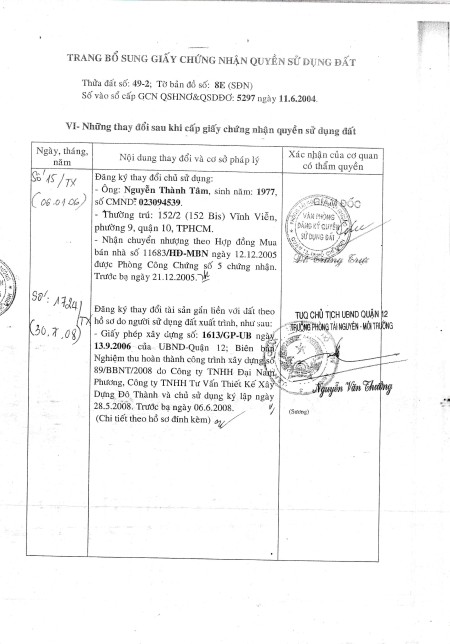 TRANG BỔ SUNG GIẤY CHỨNG NHẬN QUYỀN SỬ DỤNG ĐẤT
Thửa đất số: 49-2; Tờ bản đồ số: 8E (SĐN)
Số vào sổ cấp GCN QSHNƠ&QSDĐƠ: 5297 ngày 11.6.2004.
VI- Những thay đổi sau khi cấp giấy chứng nhận quyền sử dụng đất
Ngày, tháng, năm
Nội dung thay đổi và cơ sở pháp lý
Xác nhận của cơ quan có thẩm quyền
Số 15/TX
(06.01.06)
Đăng ký thay đổi chủ sử dụng:
- Ông: Nguyễn Thành Tâm, sinh năm: 1977,
số CMND: 023094539.
- Thường trú: 152/2 (152 Bis) Vĩnh Viễn,
phường 9, quận 10, TPHCM.
- Nhận chuyển nhượng theo Hợp đồng Mua
bán nhà số 11683/HĐ-MBN ngày 12.12.2005
được Phòng Công Chứng số 5 chứng nhận.
Trước bạ ngày 21.12.2005.
GIÁM ĐỐC
VĂN PHÒNG
ĐĂNG KÝ QUYỀN
SỬ DỤNG ĐẤT
Số: 1724/TX
(30.X.08)
Đăng ký thay đổi tài sản gắn liền với đất theo
hồ sơ do người sử dụng đất xuất trình, như sau:
- Giấy phép xây dựng số 1613/GP-UB ngày
13.9.2006 của UBND-Quận 12; Biên bản
Nghiệm thu hoàn thành công trình xây dựng số
89/BBNT/2008 do Công ty TNHH Đại Nam
Phương, Công ty TNHH Tư Vấn Thiết Kế Xây
Dựng Đô Thành và chủ sử dụng ký lập ngày
28.5.2008. Trước bạ ngày 06.6.2008.
(Chi tiết theo hồ sơ đính kèm)
TUQ CHỦ TỊCH UBND QUẬN 12
TRƯỞNG PHÒNG TÀI NGUYÊN - MÔI TRƯỜNG
Nguyễn Văn Thưởng
(Sương)